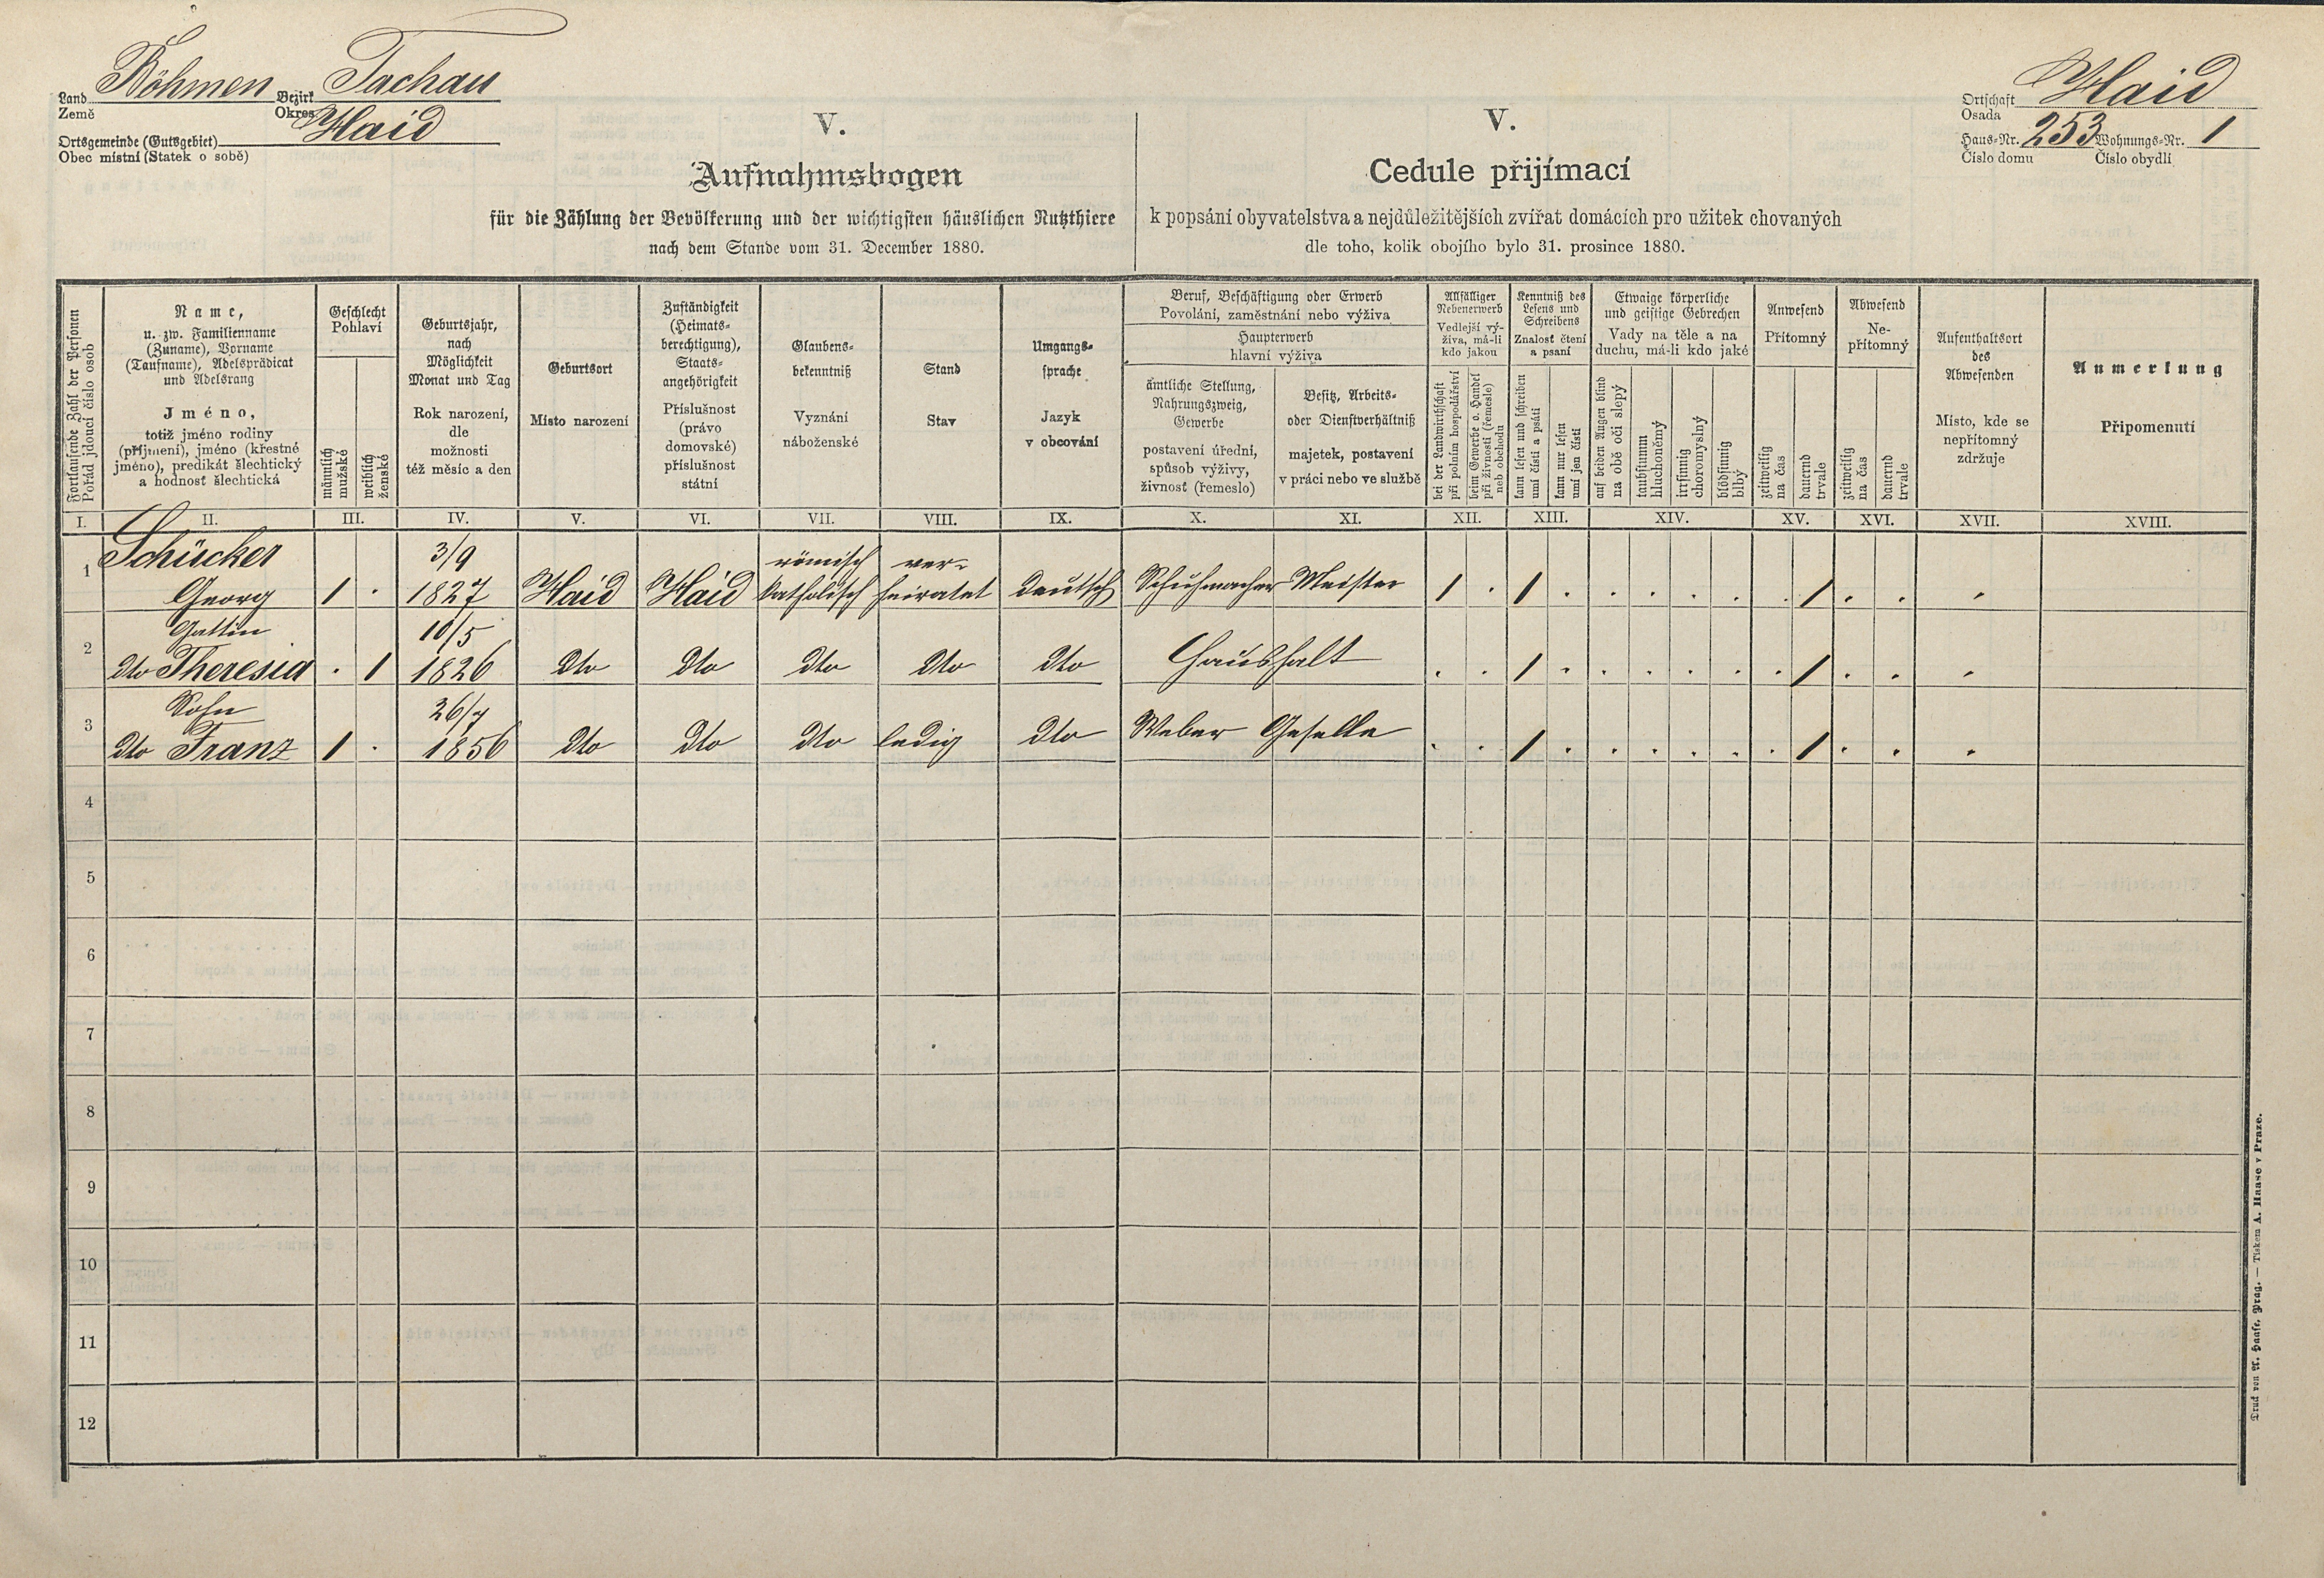 Land Böhmen Bezirk Tachau
Země Okres
Ortsgemeinde (Gutsgebiet) Haid
Obec místní (Statek o sobě)
V.
Aufnahmsbogen
für die Zählung der Bevölkerung und der wichtigsten häuslichen Nutzthiere
nach dem Stande vom 31. December 1880.
V.
Cedule přijímací
k popsání obyvatelstva a nejdůležitějších zvířat domácích pro užitek chovaných
dle toho, kolik obojího bylo 31. prosince 1880.
Ortschaft Haid
Osada
Haus-Nr. 253 Wohnungs-Nr. 1
Číslo domu Číslo obydlí
Fortlaufende Zahl der Personen
Pořád jdoucí číslo osob
Name,
u. zw. Familienname
(Zuname), Vorname
(Taufname), Adelsprädicat
und Adelsrang
Jméno,
totiž jméno rodiny
(příjmení), jméno (křestné
jméno), predikát šlechtický
a hodnosť šlechtická
Geschlecht
Pohlaví
männlich
mužské
weiblich
ženské
Geburtsjahr,
nach
Möglichkeit
Monat und Tag
Rok narození,
dle
možnosti
též měsíc a den
Geburtsort
Místo narození
Zuständigkeit
(Heimats-
berechtigung),
Staats-
angehörigkeit
Příslušnost
(právo
domovské)
příslušnost
státní
Glaubens-
bekenntniß
Vyznání
náboženské
Stand
Stav
Umgangs-
sprache
Jazyk
v obcování
Beruf, Beschäftigung oder Erwerb
Povolání, zaměstnání nebo výživa
Haupterwerb
hlavní výživa
ämtliche Stellung,
Nahrungszweig,
Gewerbe
postavení úřední,
spůsob výživy,
živnosť (řemeslo)
Besitz, Arbeits-
oder Dienstverhältniß
majetek, postavení
v práci nebo ve službě
Allfälliger
Nebenerwerb
Vedlejší vý-
živa, má-li
kdo jakou
bei der Landwirthschaft
při polním hospodářství
beim Gewerbe o. Handel
při živnosti (řemeslo)
neb obchodu
Kenntniß des
Lesens und
Schreibens
Znalosť čtení
a psaní
kann lesen und schreiben
umí čísti a psáti
kann nur lesen
umí jen čísti
Etwaige körperliche
und geistige Gebrechen
Vady na těle a na
duchu, má-li kdo jaké
auf beiden Augen blind
na obě oči slepý
taubstumm
hluchoněmý
irrsinnig
choromyslný
blödsinnig
blbý
Anwesend
Přítomný
zeitweilig
na čas
dauernd
trvale
Abwesend
Ne-
přítomný
zeitweilig
na čas
dauernd
trvale
Aufenthaltsort
des
Abwesenden
Místo, kde se
nepřítomný
zdržuje
Anmerkung
Připomenutí
I. II. III. IV. V. VI. VII. VIII. IX. X. XI. XII. XIII. XIV. XV. XVI. XVII. XVIII.
Schücker 3/9 römisch ver-
1 Georg 1 . 1827 Haid Haid katholisch heiratet deutsch Schuhmacher Meister 1 . 1 . . . . . . 1 . . .
Gattin 10/5
2 dto Theresia . 1 1826 dto dto dto dto dto Haushalt . . 1 . . . . . . 1 . . .
Sohn 26/7
3 dto Franz 1 . 1856 dto dto dto ledig dto Weber Geselle . . 1 . . . . . . 1 . . .
4
5
6
7
8
9
10
11
12
Druck von A. Haase, Prag. — Tiskem A. Haase v Praze.